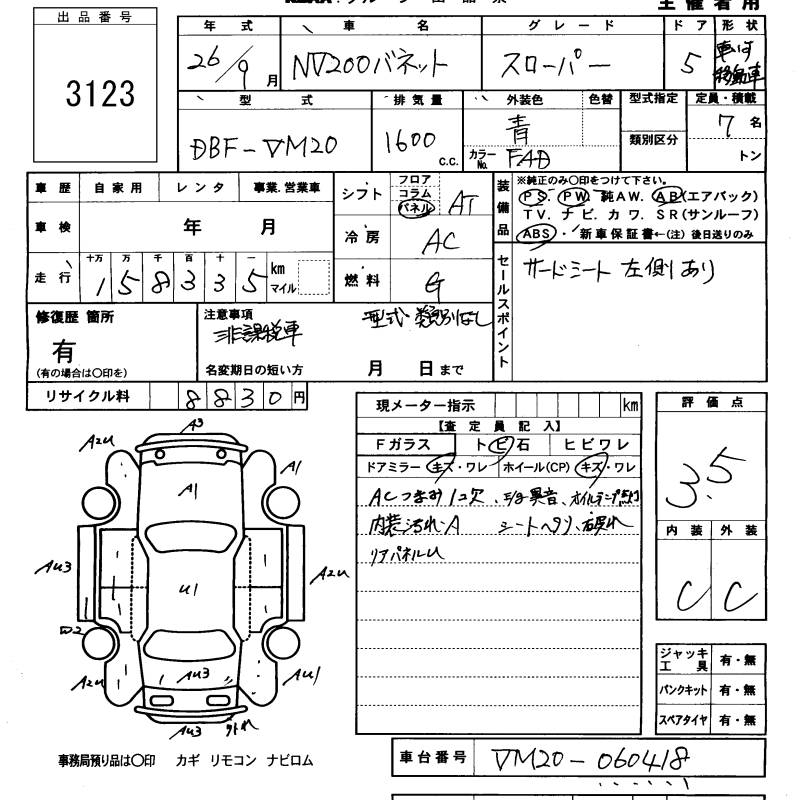 出品番号
3123
主催者用
年式 車名 グレード ドア 形状
26/9月 NV200バネット スローパー 5 車いす移動車
型式 排気量 外装色 色替 型式指定 定員・積載
DBF-VM20 1600 c.c. 青 カラーNo. FAD 類別区分 7名 トン
車歴 自家用 レンタ 事業.営業車
車検 年 月
走行 十万 万 千 百 十 一 km マイル
158335
シフト フロア コラム パネル AT
冷房 AC
燃料 G
装備品
※純正のみ○印をつけて下さい。
PS. PW. 純AW. AB(エアバック)
TV. ナビ. カワ. SR(サンルーフ)
ABS・新車保証書←(注)後日送りのみ
セールスポイント
サードシート 左側あり
修復歴 箇所
有
(有の場合は○印を)
注意事項
非課税車
型式・類別なし
名変期日の短い方 月 日まで
リサイクル料 8830円
現メーター指示 km
【査定員記入】
Fガラス トビ石 ヒビワレ
ドアミラー キズ・ワレ ホイール(CP) キズ・ワレ
ACつまみ1コ欠
内装汚れ・A
リアパネルU
評価点
3.5
内装 外装
C C
A3
A2U A1
A1
AU3 U1 A2U
A2U AU3 AU1
AU3
ジャッキ工具 有・無
パンクキット 有・無
スペアタイヤ 有・無
事務局預り品は○印 カギ リモコン ナビロム
車台番号 VM20-060418